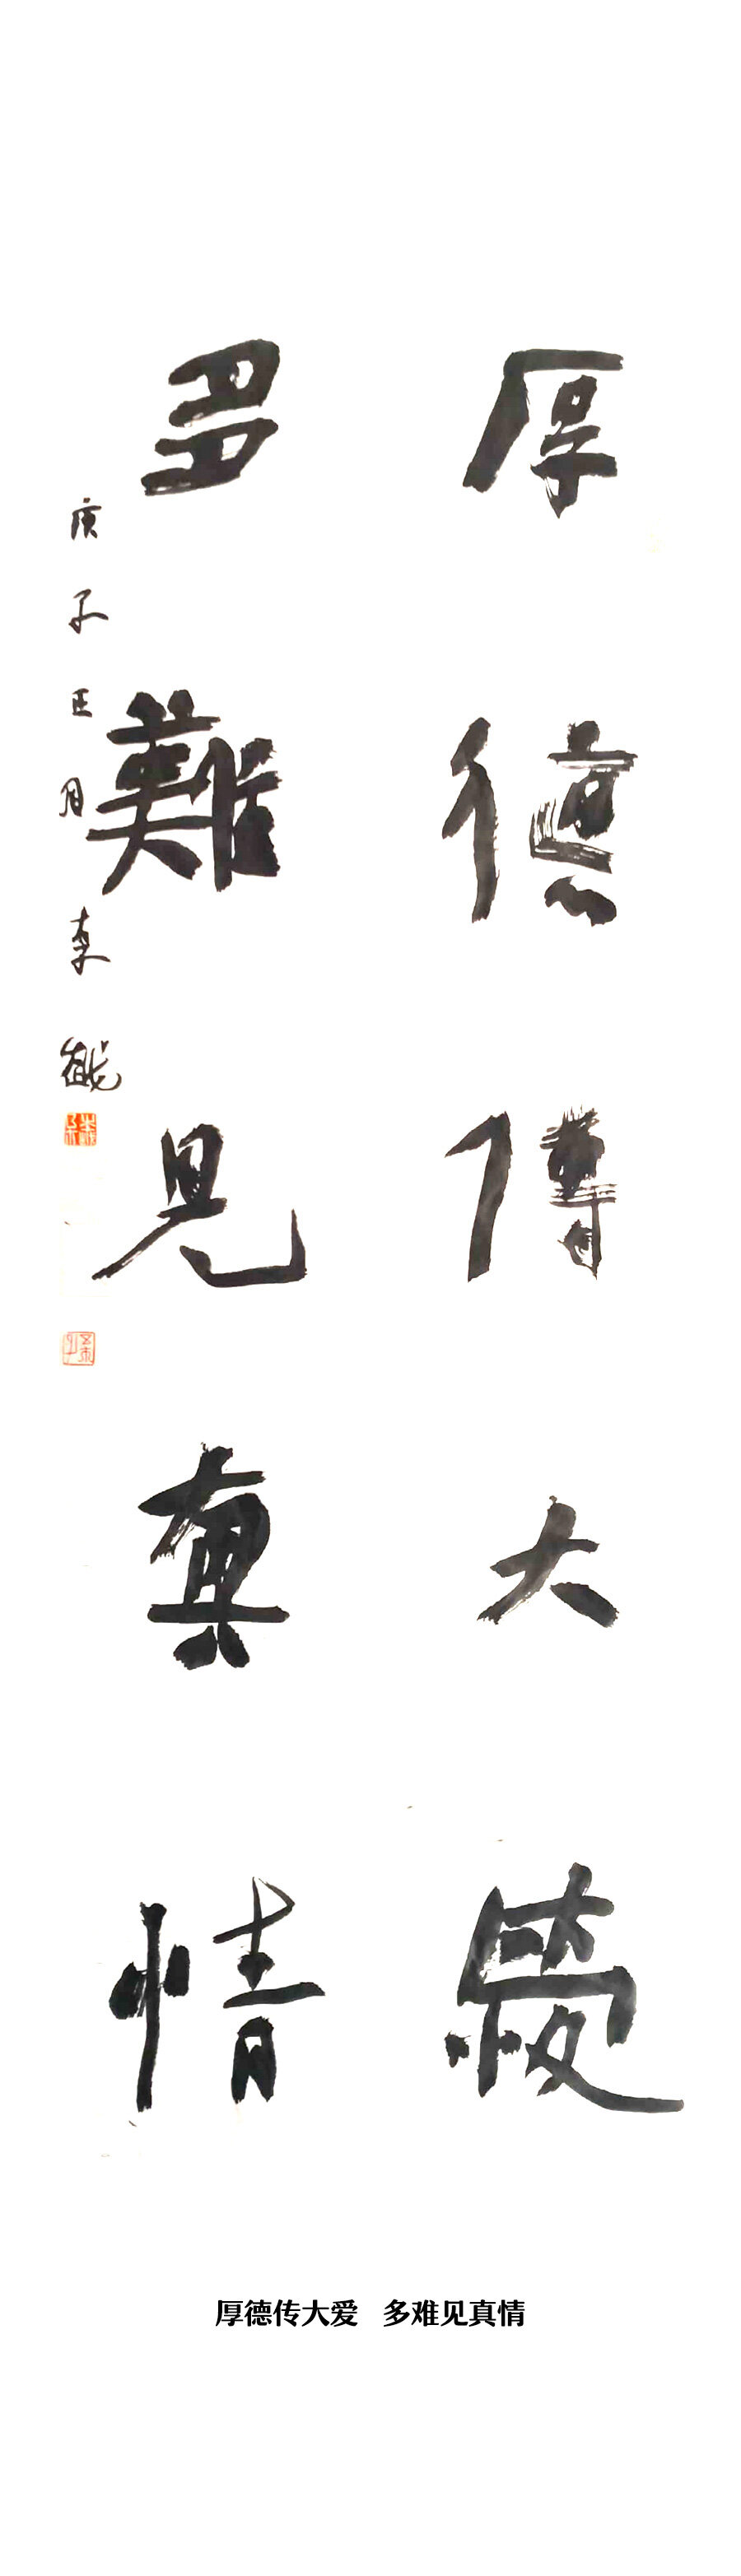 厚德傳大愛
多難見真情
庚子正月李
厚德传大爱 多难见真情